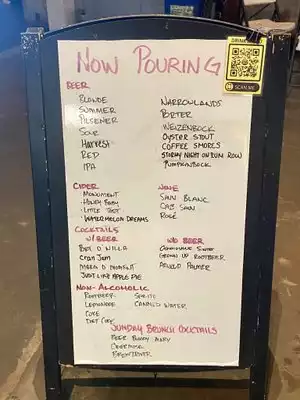 NOW POURING
DRINK
SCAN ME
BEER
BLONDE
SUMMER
PILSENER
SOUR
HARVEST
RED
IPA
NARROWLANDS
PORTER
WEIZENBOCK
OYSTER STOUT
COFFEE SMORES
STORMY NIGHT ON RUM ROW
PUMPKINBOCK
CIDER
MONUMENT
HONEY BABY
LITTLE TART
WATERMELON DREAMS
WINE
SAUV BLANC
CAB SAUV
ROSÉ
COCKTAILS
W/ BEER
CRAN JAM
JUST LIKE APPLE PIE
W/O BEER
GROWN UP ROOTBEER
ARNOLD PALMER
NON-ALCOHOLIC
ROOTBEER
LEMONADE
COKE
DIET COKE
SPRITE
CANNED WATER
SUNDAY BRUNCH COCKTAILS
BEER BLOODY MARY
BEERMOSA
BREWDRIVER